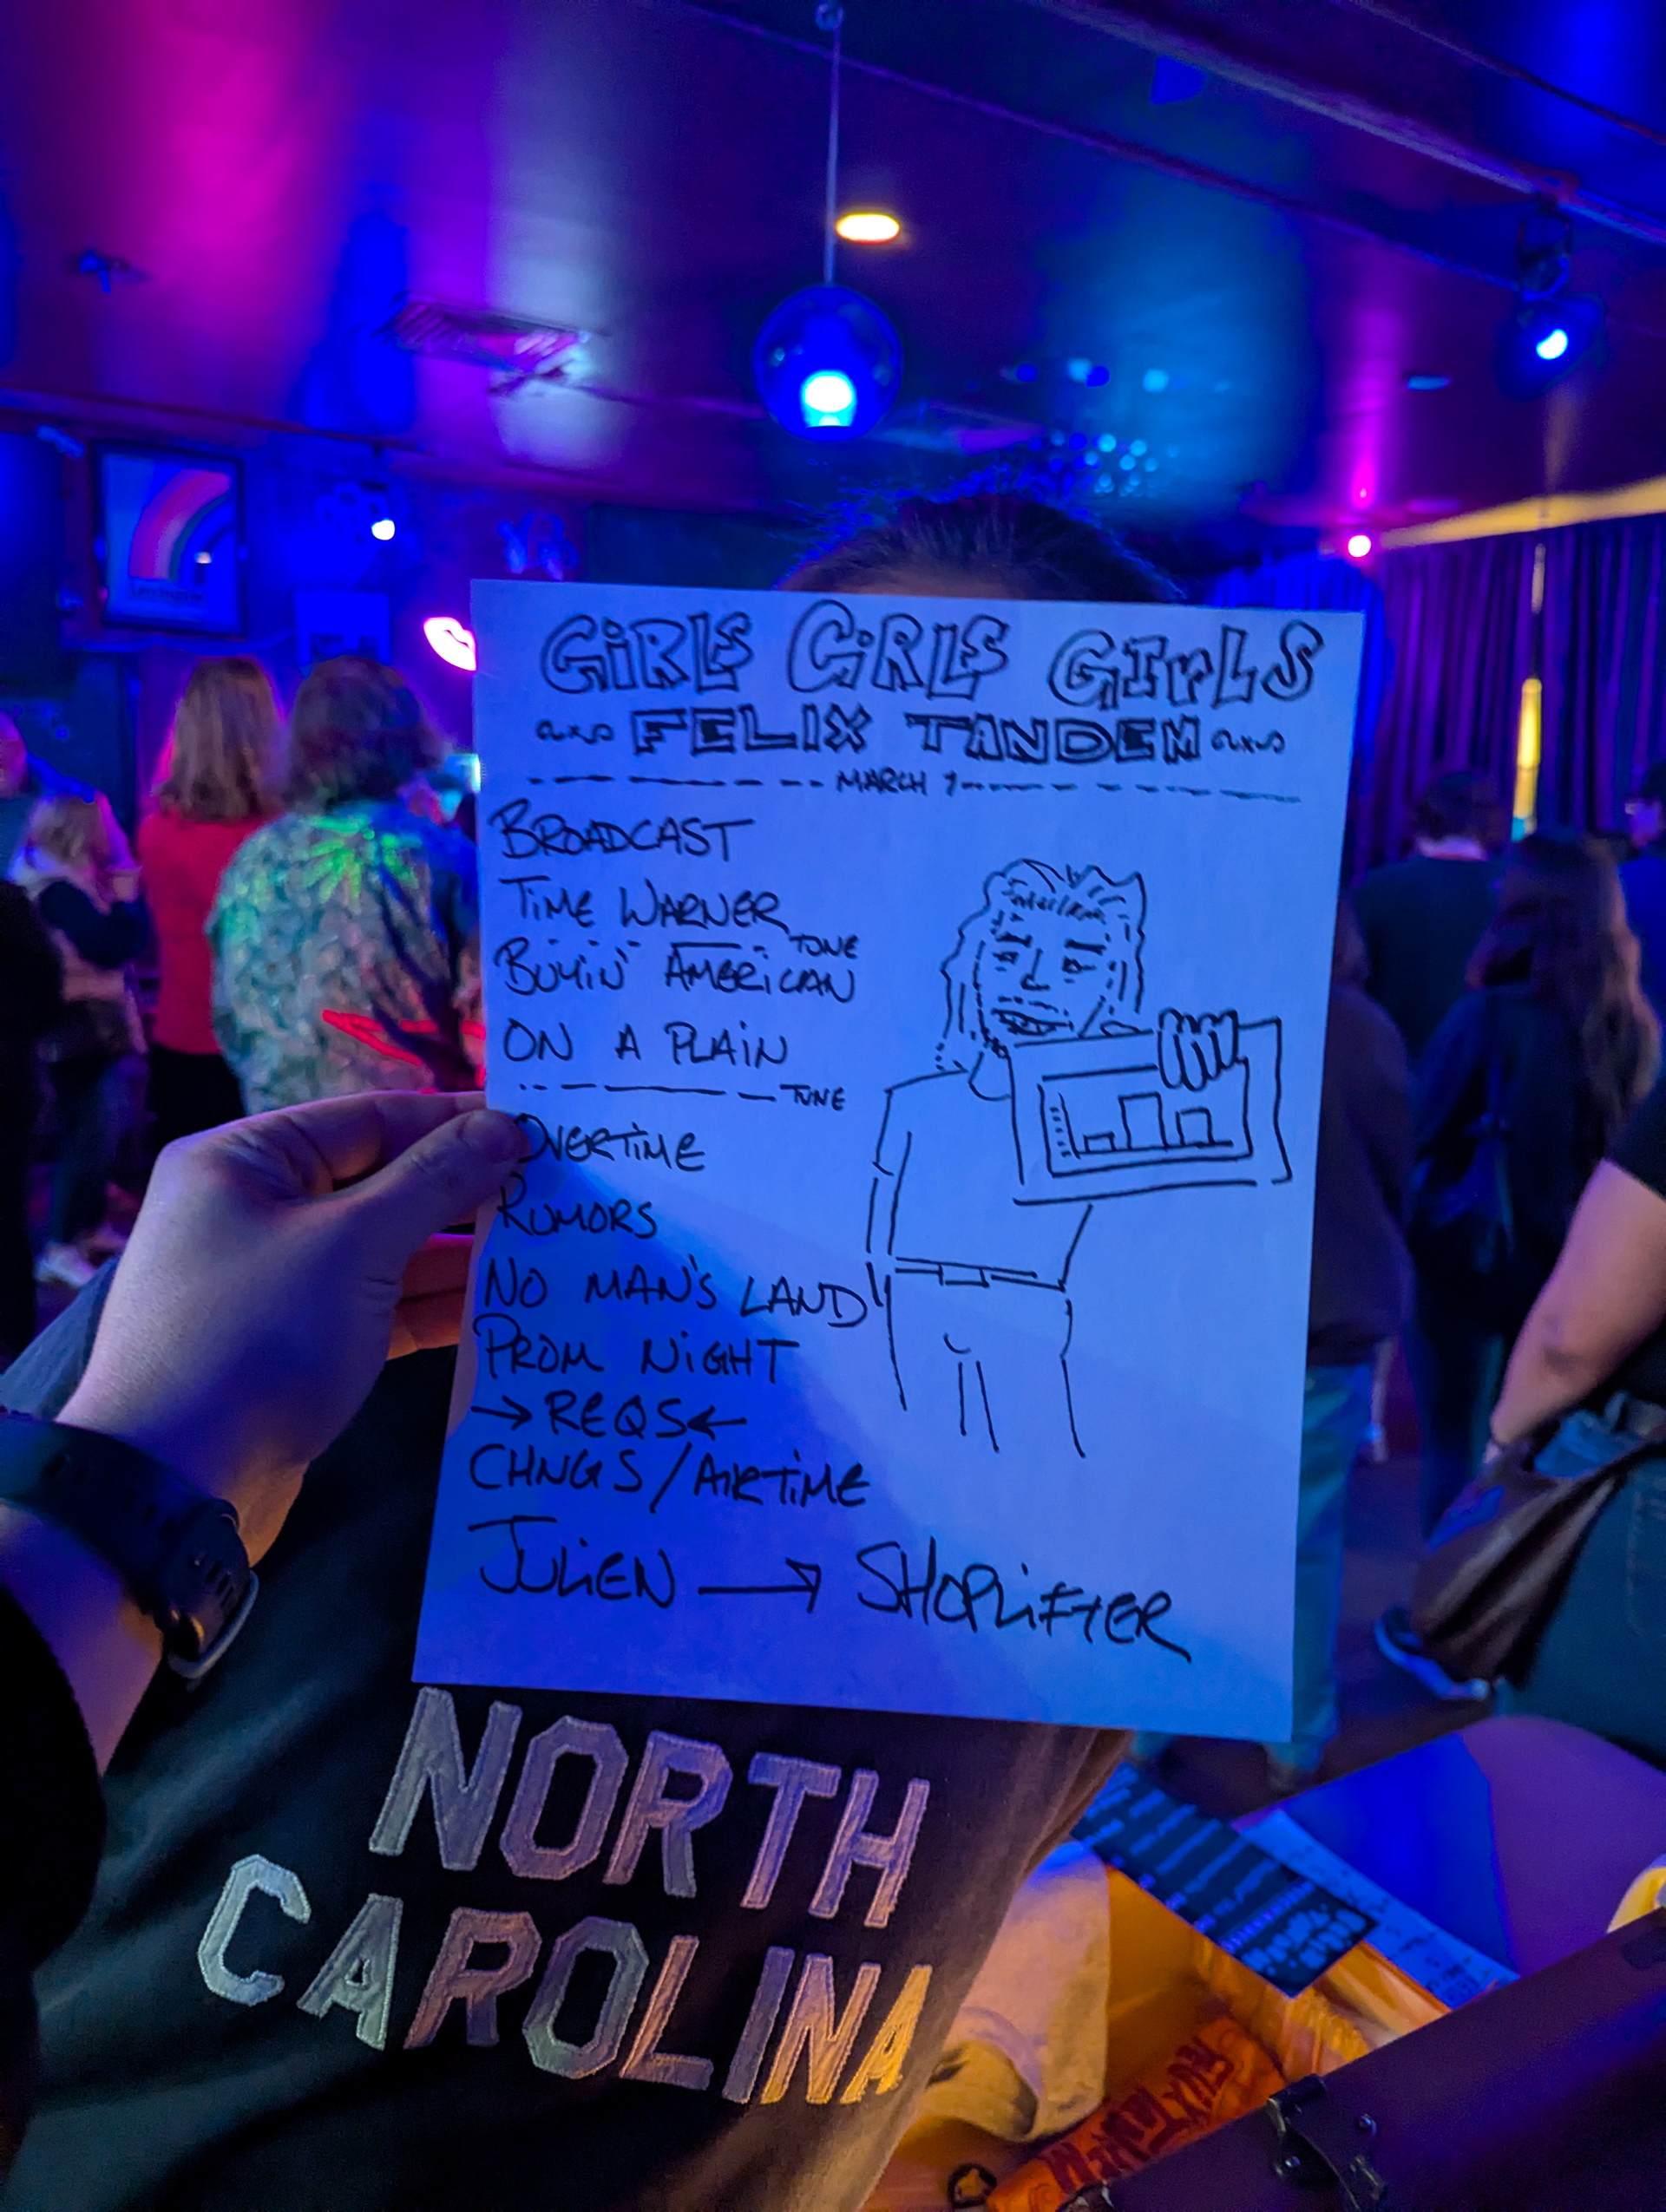 GiRLS GiRLS GIrLS
FELIX TANDEM
MARCH 7
BROADCAST
TiME WARNER
TUNE
BUYiN' AMERiCAN
ON A PLAiN
TUNE
OVERTiME
RUMORS
NO MAN'S LAND
PROM NiGHT
→ REQS ←
CHNGS / AiRTiME
JULiEN → SHOPLiFTER
NORTH
CAROLINA
FELIX TANDEM